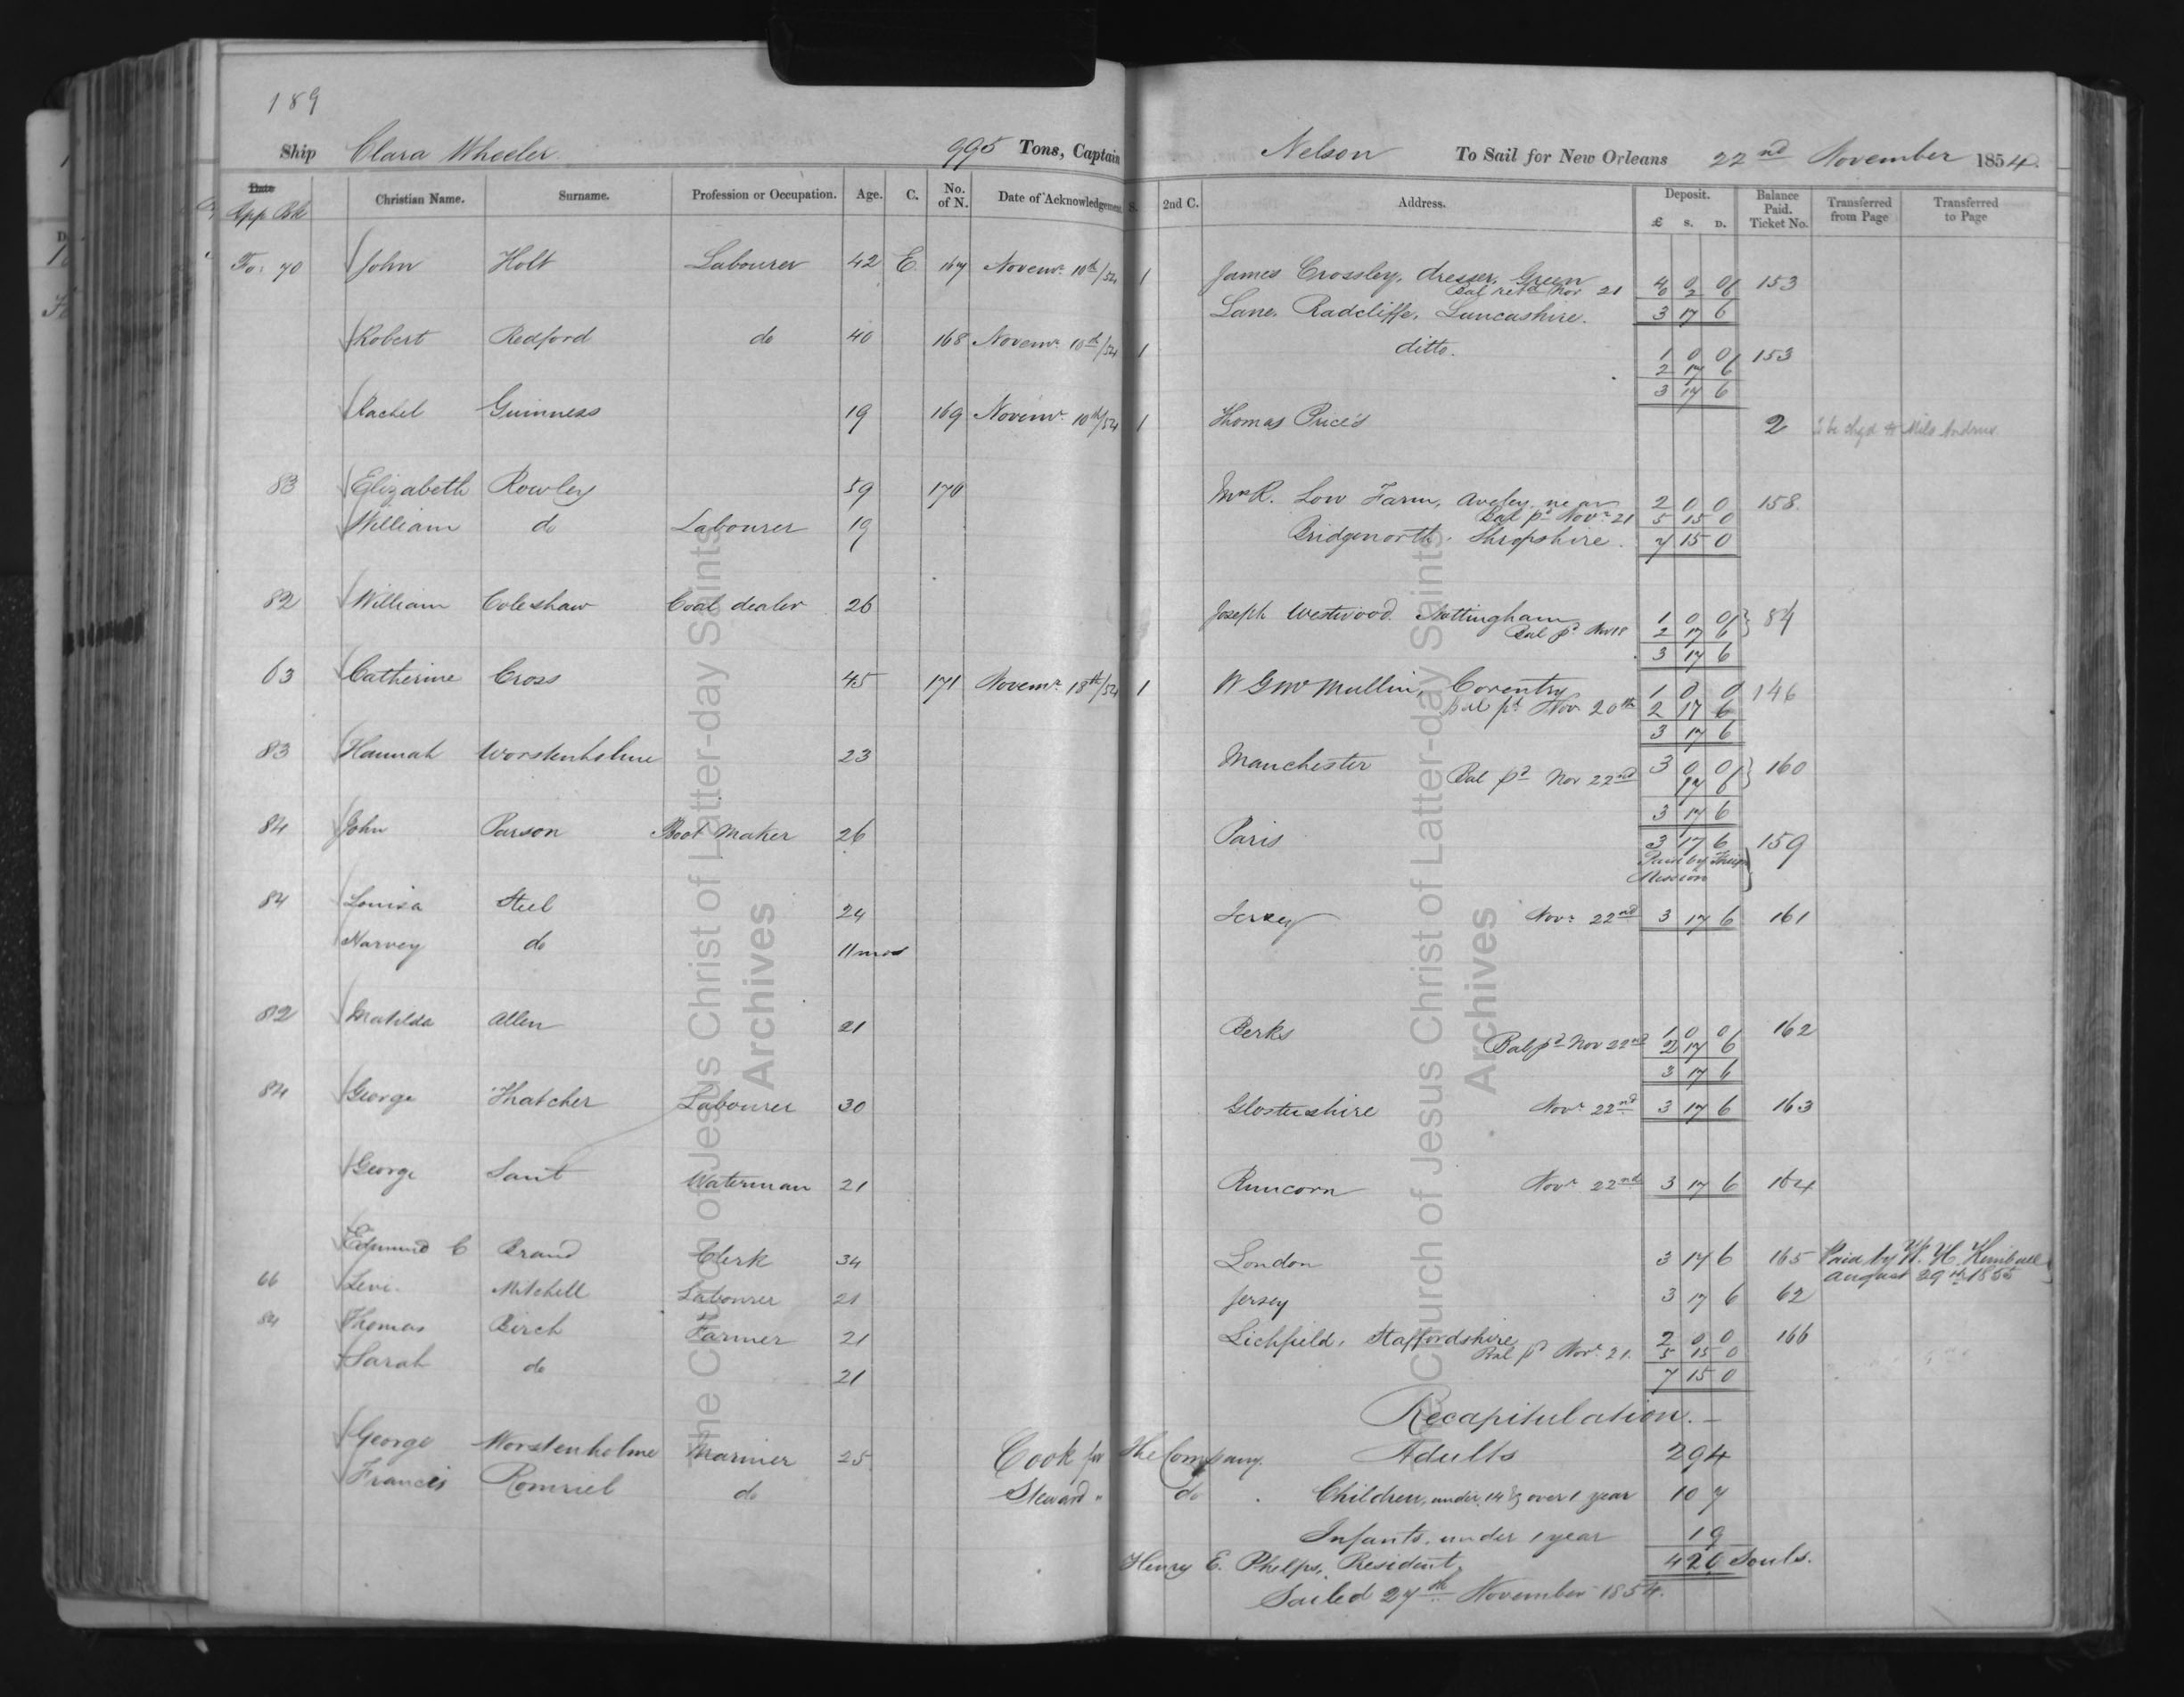 189
Ship Clara Wheeler. 995 Tons, Captain Nelson To Sail for New Orleans 22nd November 1854.
Date App Bk Christian Name. Surname. Profession or Occupation. Age. C. No. of N. Date of Acknowledgement S. 2nd C. Address. Deposit. £ S. D. Balance Paid. Ticket No. Transferred from Page Transferred to Page
Fo: 70 John Holt Labourer 42 E 167 Novemr. 10th/54 1 James Crossley, dresser, Green 4 0 0 153
Bal retd Nov 21 0 2 6
Lane, Radcliffe, Lancashire. 3 17 6
Robert Redford do 40 168 Novemr. 10th/54 1 ditto. 1 0 0 153
2 17 6
3 17 6
Rachel Guinness 19 169 Novemr. 10th/54 1 Thomas Price's 2 to be chgd to Milo Andrus.
83 Elizabeth Rowley 59 170 Mrs R. Low Farm, near 2 0 0 158.
William do Labourer 19 Bal pd Novr 21 5 15 0
Bridgenorth, Shropshire. 7 15 0
82 William Coleshaw Coal dealer 26 Joseph Westwood Nottingham 1 0 0 84
Bal pd Nov 18 2 17 6
3 17 6
63 Catherine Cross 45 171 Novemr. 18th/54 1 Mullin, Coventry 1 0 0 146
Bal pd Nov 20th 2 17 6
3 17 6
83 Hannah Worstenholme 23 Manchester 3 0 0 160
Bal pd Nov 22nd 17 6
3 17 6
84 John Parson Boot Maker 26 Paris 3 17 6 159
Paid by
Mission
84 Louisa Steel 24 Jersey Novr 22nd 3 17 6 161
Harvey do 11 mos
82 Matilda Allen 21 Berks 1 0 0 162
Bal pd Nov 22nd 2 17 6
3 17 6
84 George Thatcher Labourer 30 Glostershire Novr 22nd 3 17 6 163
George Sant Waterman 21 Runcorn Novr 22nd 3 17 6 164
Edmund C Brand Clerk 34 London 3 17 6 165 Paid by W. H. Kimball
August 29th 1855
66 Levi Mitchell Labourer 21 Jersey 3 17 6 62
84 Thomas Birch Farmer 21 Lichfield, Staffordshire 2 0 0 166
Bal pd Novr 21. 5 15 0
Sarah do 21 7 15 0
Recapitulation.
George Worstenholme Mariner 25 Cook for the Company. Adults 294
Francis Romriel do Steward " do Children, under 14 & over 1 year 107
Infants, under 1 year 19
Henry E. Phelps, President. 420 Souls.
Sailed 27th November 1854.
The Church of Jesus Christ of Latter-day Saints
Archives
The Church of Jesus Christ of Latter-day Saints
Archives